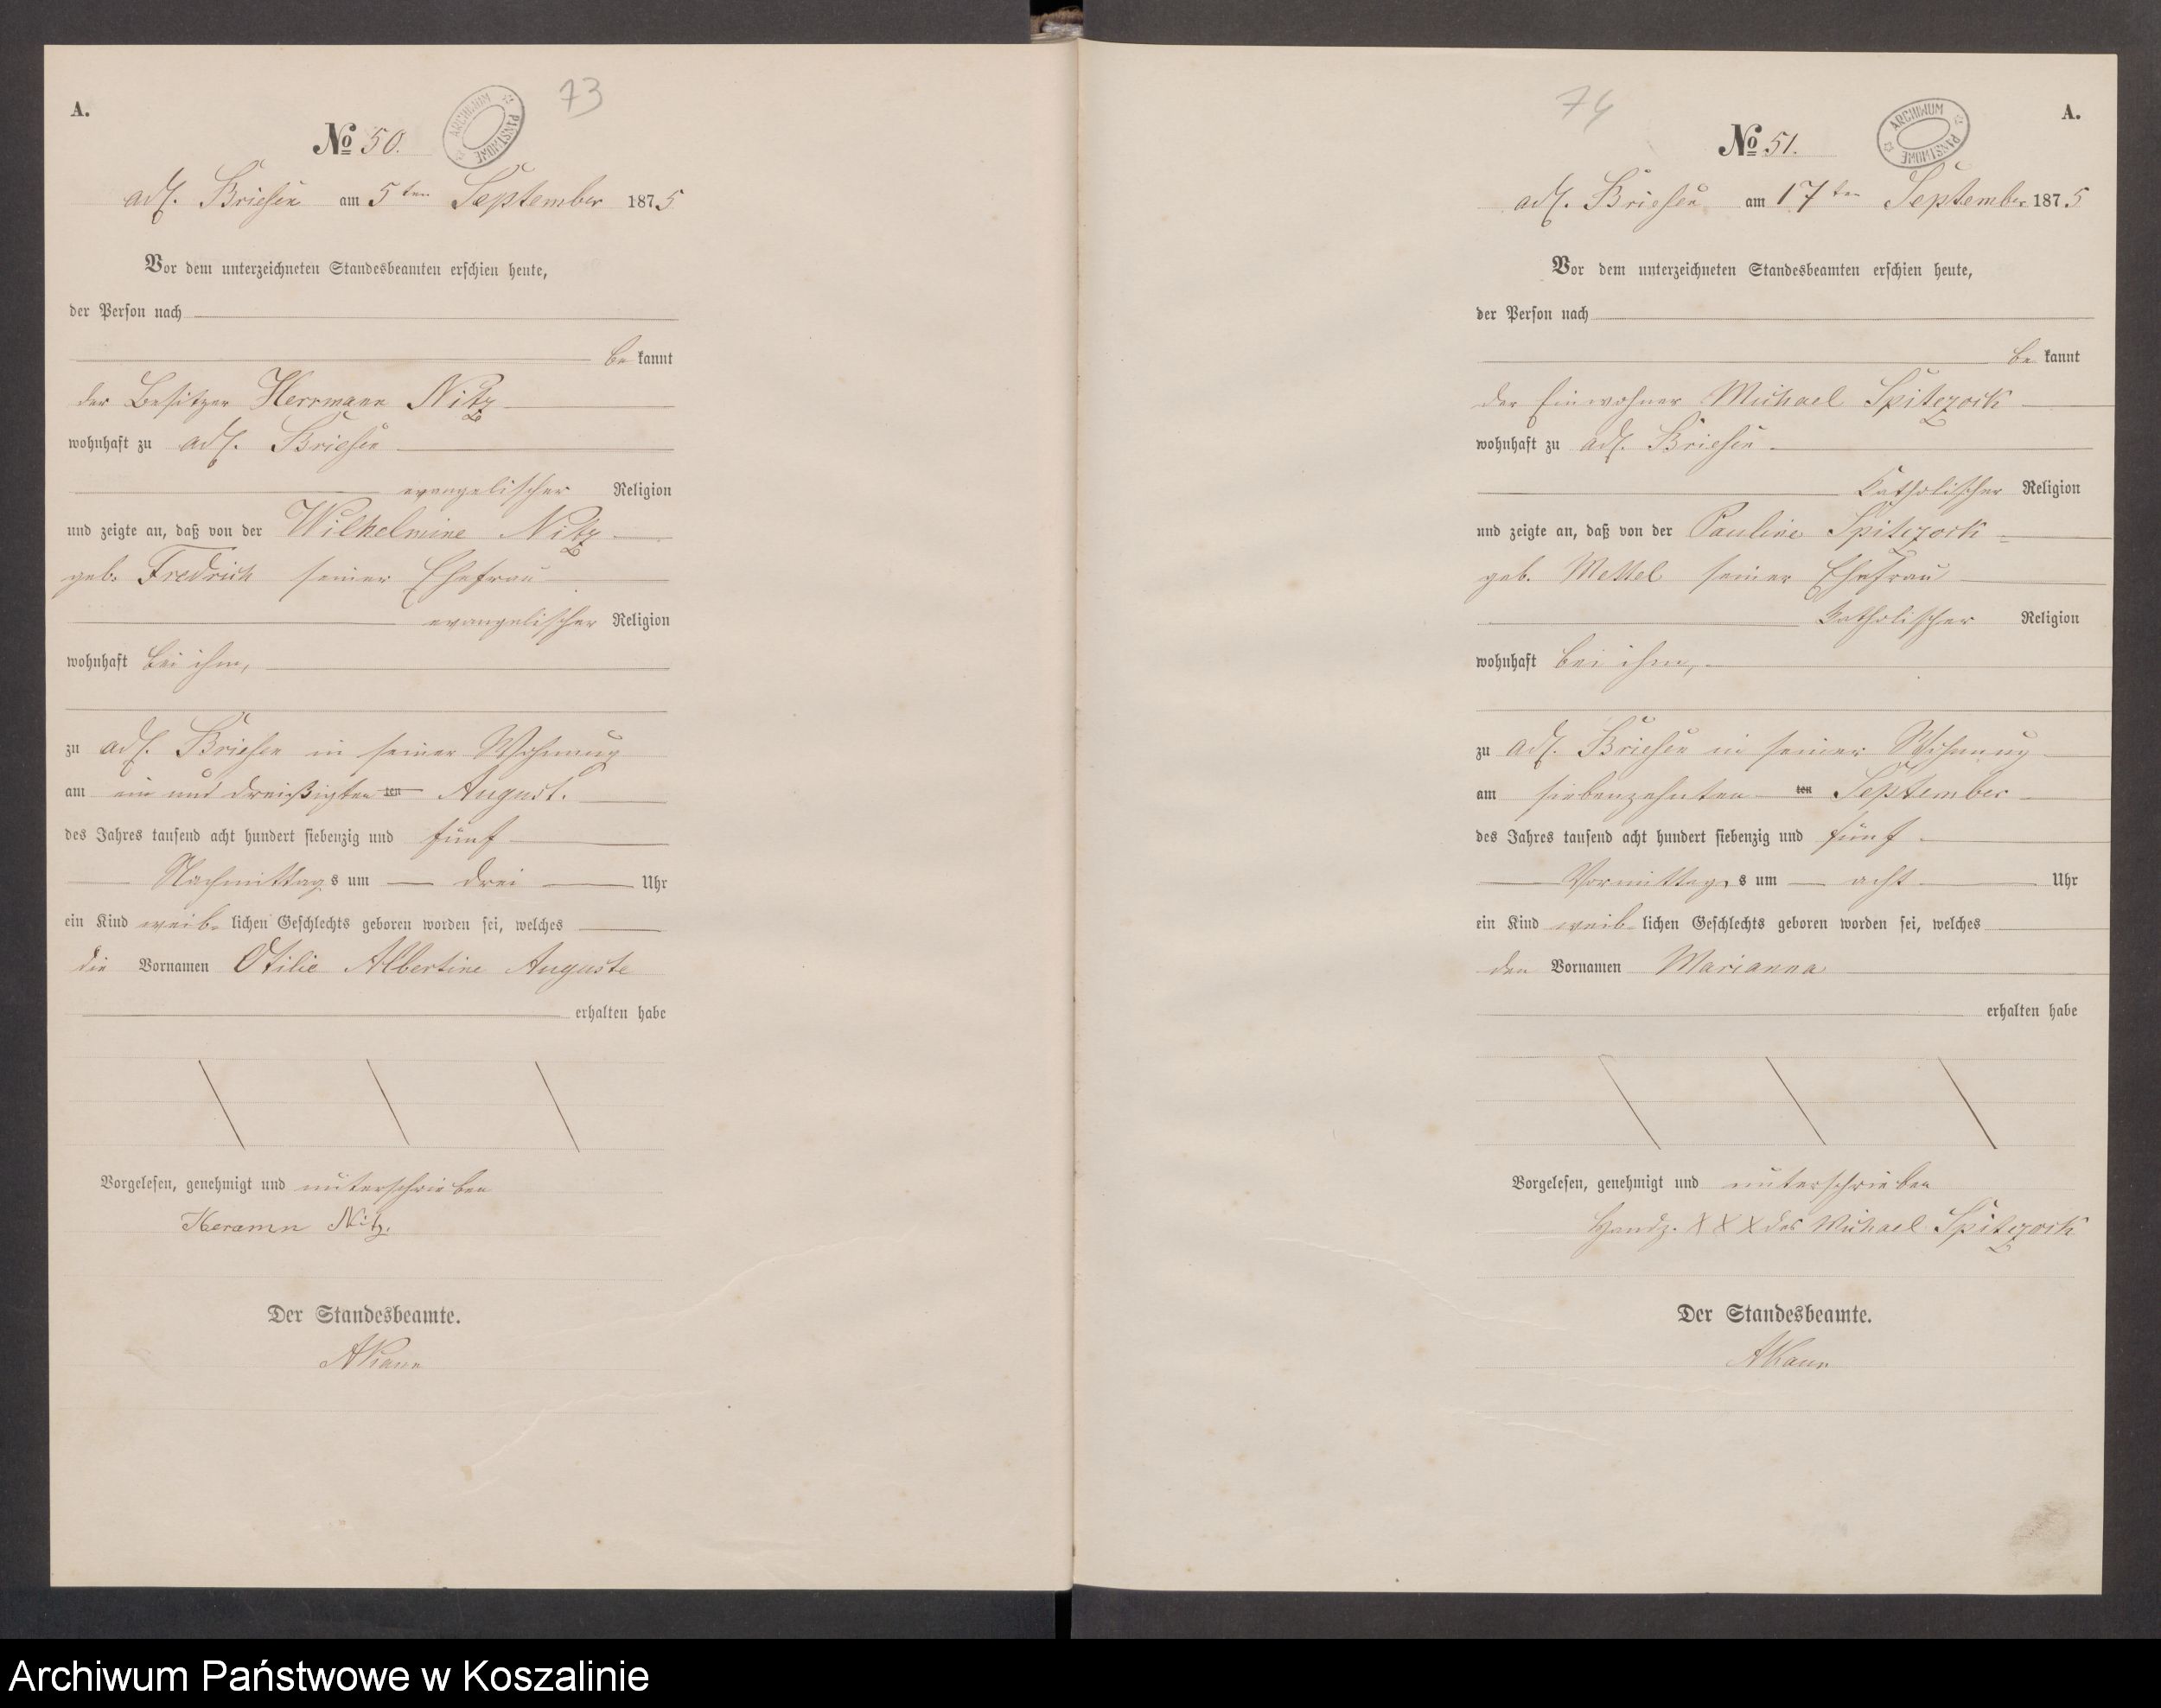 A.
73
No 50.
ARCHIWUM PAŃSTWOWE
adl. Briesen am 5ten September 1875
Vor dem unterzeichneten Standesbeamten erschien heute,
der Person nach
be kannt
der Besitzer Herrmann Nitz
wohnhaft zu adl. Briesen
evangelischer Religion
und zeigte an, daß von der Wilhelmine Nitz
geb. Fredrich seiner Ehefrau
evangelischer Religion
wohnhaft bei ihm,
zu adl. Briesen in seiner Wohnung
am ein und dreißigten ten August.
des Jahres tausend acht hundert siebenzig und fünf
Nachmittags um drei Uhr
ein Kind weib lichen Geschlechts geboren worden sei, welches
die Vornamen Otilie Albertine Auguste
erhalten habe
Vorgelesen, genehmigt und unterschrieben
Heramn Nitz.
Der Standesbeamte.
74
A.
No 51.
ARCHIWUM PAŃSTWOWE
adl. Briesen am 17ten September 1875
Vor dem unterzeichneten Standesbeamten erschien heute,
der Person nach
be kannt
der Einwohner Michael Spitczock
wohnhaft zu adl. Briesen
Katholischer Religion
und zeigte an, daß von der Pauline Spitczock
geb. seiner Ehefrau
Katholischer Religion
wohnhaft bei ihm,
zu adl. Briesen in seiner Wohnung
am siebenzehnten ten September
des Jahres tausend acht hundert siebenzig und fünf
Vormittags um acht Uhr
ein Kind weib lichen Geschlechts geboren worden sei, welches
den Vornamen Marianna
erhalten habe
Vorgelesen, genehmigt und unterschrieben
Handz. XXX des Michael Spitczock
Der Standesbeamte.
Archiwum Państwowe w Koszalinie